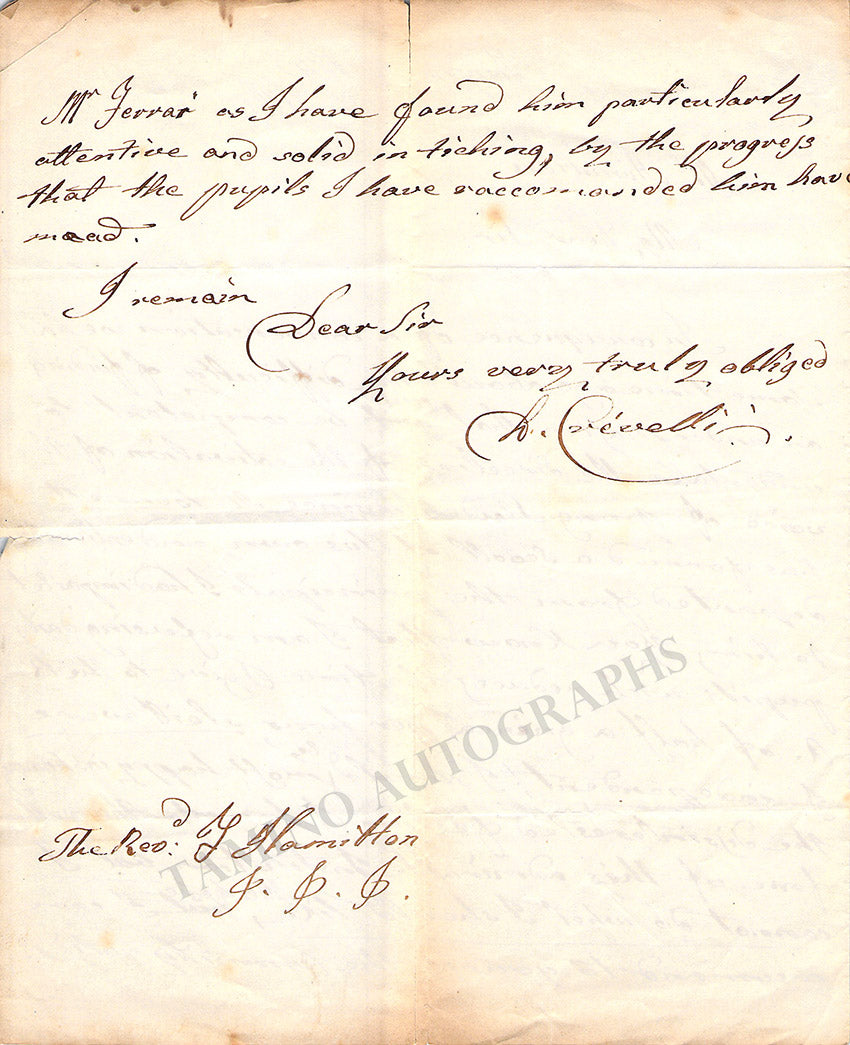 Mr Ferrar as I have found him particularly
attentive and solid in tiching, by the progress
that the pupils I have raccomanded him have
maad.
I remain
Dear Sir
Yours very truly obliged
D. Crivelli
TAMINO AUTOGRAPHS
The Revd: J Hamilton